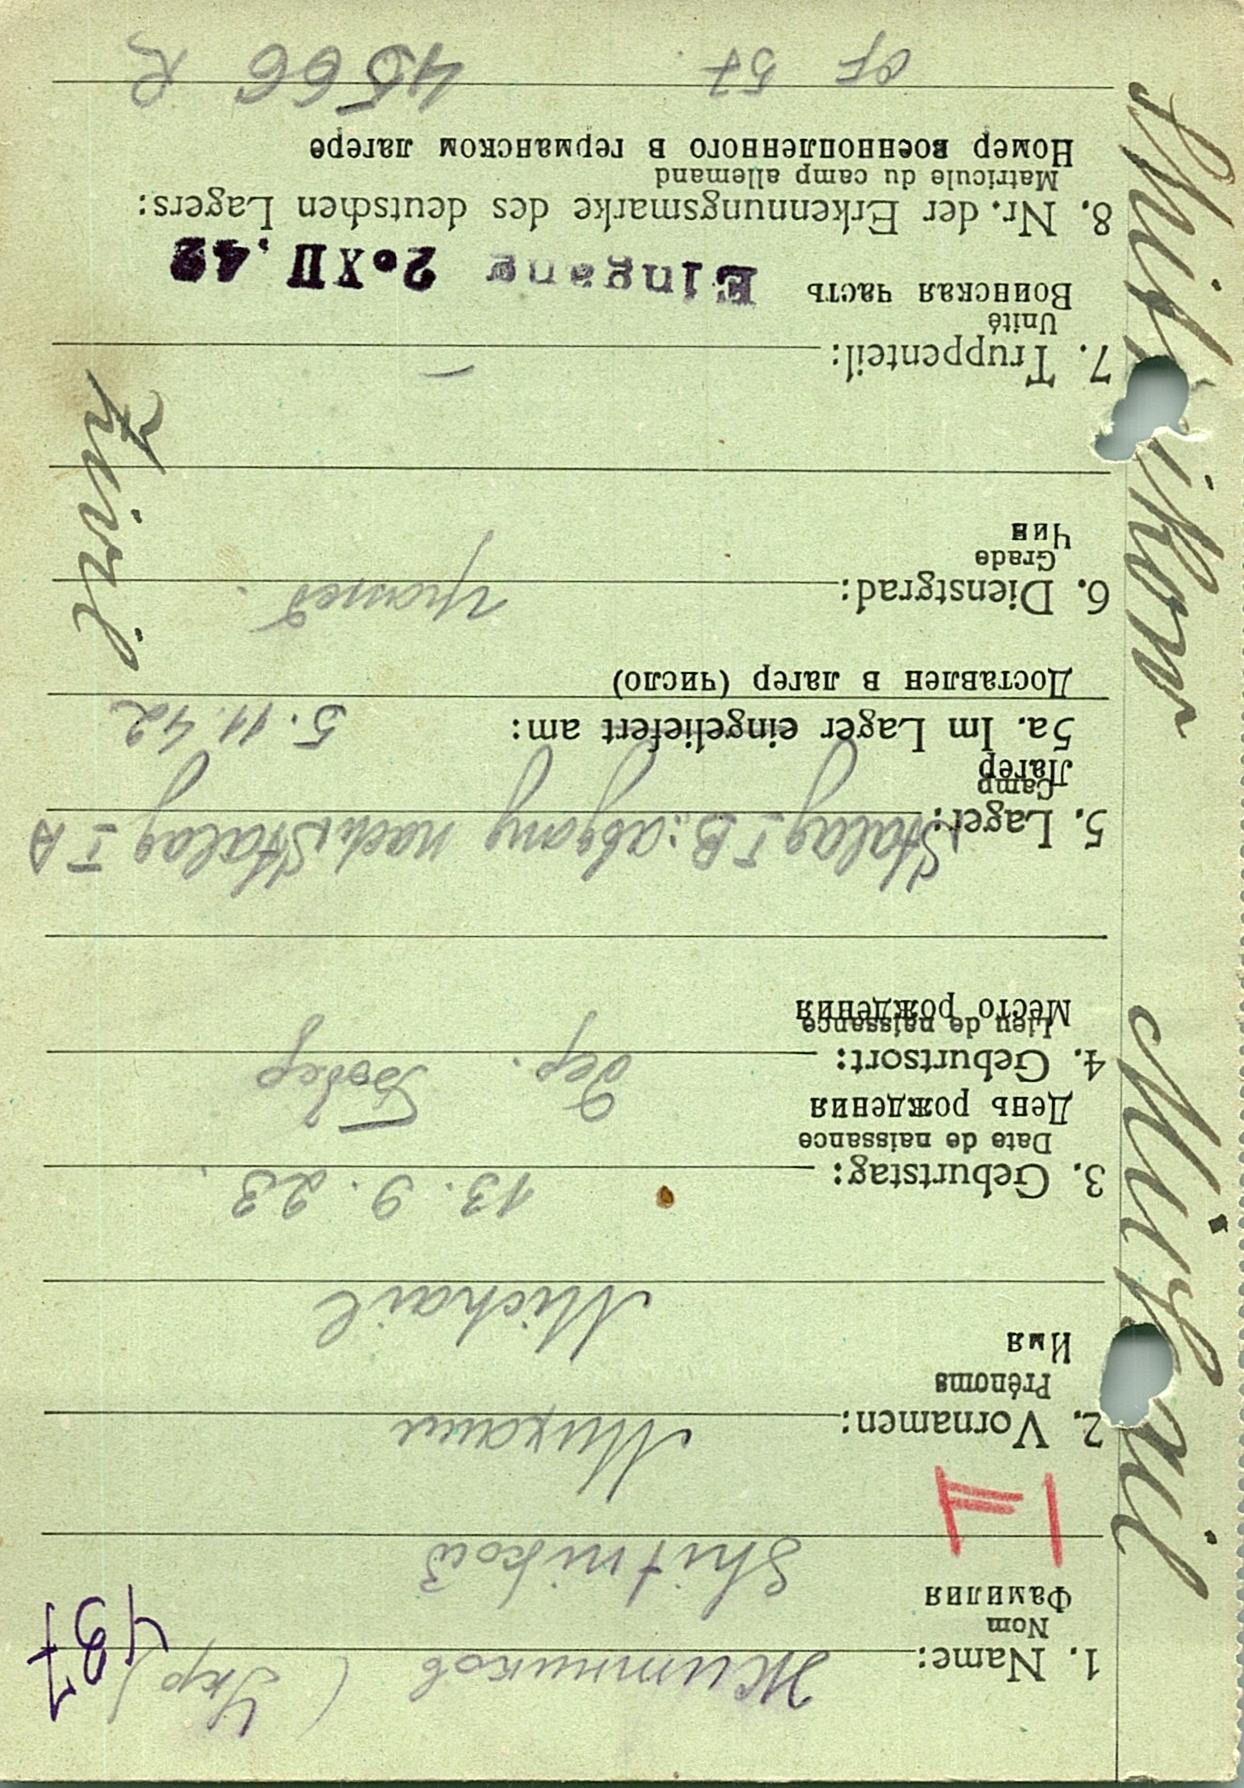 1. Name: Житников (Укр)
Nom
Фамилия
437
Shitnikow
I F
2. Vornamen: Михаил
Prénoms
Имя
Michail
3. Geburtstag: 13. 9. 23.
Date de naissance
День рождения
4. Geburtsort: дер.
Lieu de naissance
Место рождения
5. Lager: Stalag I B: abgang nach Stalag I A
Camp
Лагерь
5a. Im Lager eingeliefert am: 5. 11. 42
Доставлен в лагер (число)
6. Dienstgrad:
Grade
Чин
Zivil
7. Truppenteil: —
Unité
Воинская часть
Eingang 2. XII. 42
8. Nr. der Erkennungsmarke des deutschen Lagers:
Matricule du camp allemand
Номер военнопленного в германском лагере
57 4566
Michail Shitnikow